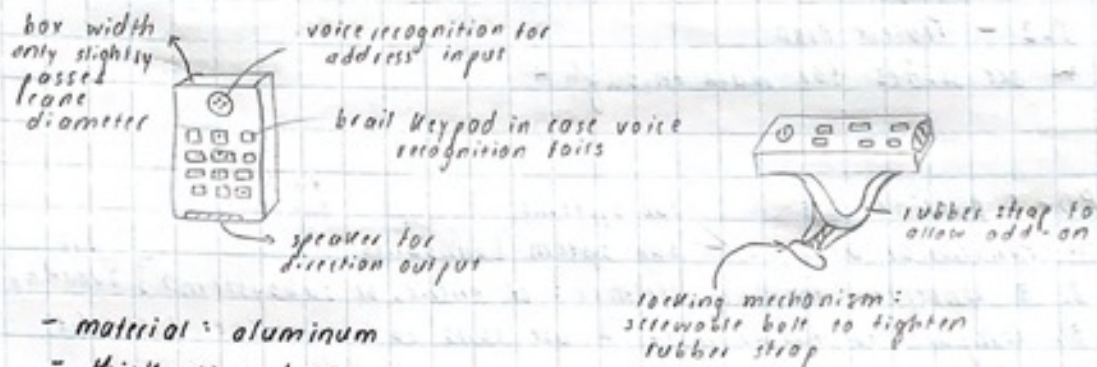 box width
only slightly
passed
cane
diameter
voice recognition for
address input
brail keypad in case voice
recognition fails
speaker for
direction output
rubber strap to
allow add-on
locking mechanism:
screwable bolt to tighten
rubber strap
- material: aluminum